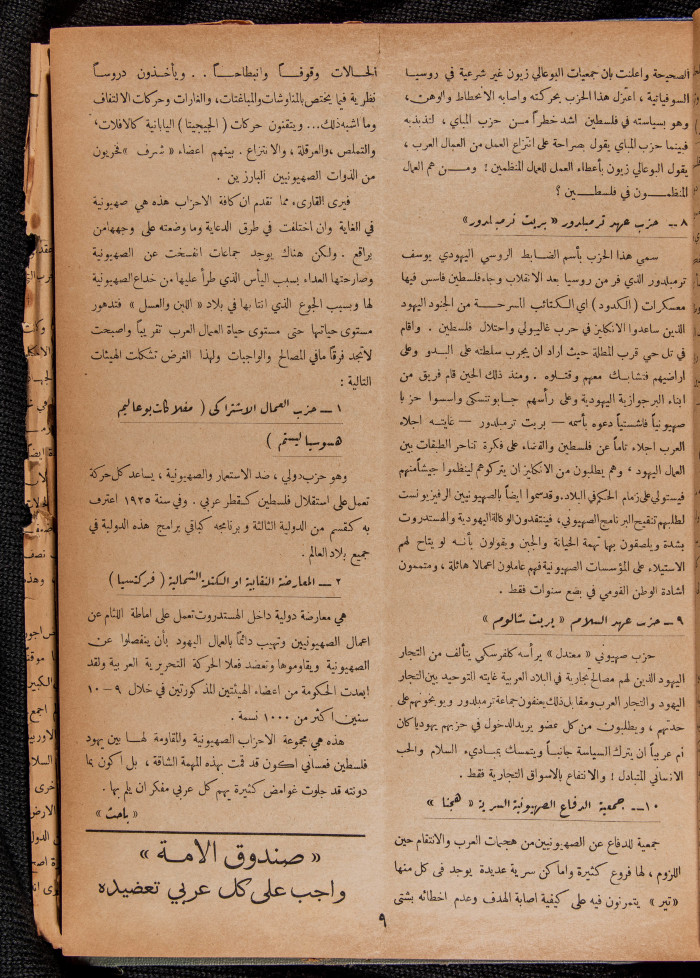 الصحيحة واعلنت بان جمعيات البوعالي زيون غير شرعية في روسيا
السوفياتية ، اعتزل هذا الحزب بحركته واصابه الانحطاط والوهن ،
وهو بسياسته في فلسطين اشد خطراً من حزب المباي ، لتذبذبه
فبينما حزب المباي يقول بصراحة على انتزاع العمل من العمال العرب ،
يقول البوعالي زيون بأعطاء العمل للعمال المنظمين ! ومن هم العمال
المنظمون في فلسطين ؟
٨ – حزب عهد ترمبلدور « بريت ترمبلدور »
سمي هذا الحزب بأسم الضابط الروسي اليهودي يوسف
ترمبلدور الذي فر من روسيا بعد الانقلاب وجاء فلسطين فاسس فيها
معسكرات ( الكدود ) اي الكتائب المسرحة من الجنود اليهود
الذين ساعدوا الانكليز في حرب غاليبولي واحتلال فلسطين . واقام
في تل حي قرب المطلة حيث اراد ان يجرب سلطته على البدو وعلى
اراضيهم فتشابك معهم وقتلوه . ومنذ ذلك الحين قام فريق من
ابناء البرجوازية اليهودية وعلى رأسهم جابوتنسكي واسسوا حزبا
صهيونياً فاشستياً دعوه بأسمه – بريت ترمبلدور – غايته اجلاء
العرب اجلاء تاماً عن فلسطين والقضاء على فكرة تناحر الطبقات بين
العمال اليهود ، وهم يطلبون من الانكليز ان يتركوهم لينظموا جيشاً منهم
فيستولي على زمام الحكم في البلاد . وقد سموا ايضاً بالصهيونيين الرفيزيونست
لطلبهم تنقيح البرنامج الصهيوني ، فينتقدون الوكالة اليهودية والهستدروت
بشدة ويلصقون بها تهمة الخيانة والجبن ويقولون بأنه لو يتاح لهم
الاستيلاء على المؤسسات الصهيونية فهم عاملون اعمالا هائلة ، ومتممون
أشادة الوطن القومي في بضع سنوات فقط .
٩ – حزب عهد السلام « بريت شالوم »
حزب صهيوني « معتدل » يرأسه كلفرسكي يتألف من التجار
اليهود الذين لهم مصالح تجارية في البلاد العربية غايته التوحيد بين التجار
اليهود والتجار العرب ومقابل ذلك يعنفون جماعة ترمبلدور ويوبخونهم على
حدتهم ، ويطلبون من كل عضو يريد الدخول في حزبهم يهوديا كان
أم عربياً ان يترك السياسة جانباً ويتمسك بمباديء السلام والحب
الانساني المتبادل ! والانتفاع بالاسواق التجارية فقط .
١٠ – جمعية الدفاع الصهيونية السرية « هجنا »
جمعية للدفاع عن الصهيونيين من هجمات العرب والانتقام حين
اللزوم ، لها فروع كثيرة واماكن سرية عديدة يوجد في كل منها
« تير » يتمرنون فيه على كيفية اصابة الهدف وعدم اخطائه بشتى
الحالات وقوفاً وانبطاحاً . . ويأخذون دروساً
نظرية فيما يختص بالمناوشات والمباغتات ، والغارات وحركات الالتفاف
وما اشبه ذلك ... ويتقنون حركات ( الجيجيتا ) اليابانية كالافلات ،
والتملص ، والعرقلة ، والانتزاع . بينهم اعضاء « شرف » فخريون
من الذوات الصهيونيين البارزين .
فيرى القارىء مما تقدم ان كافة الاحزاب هذه هي صهيونية
في الغاية وان اختلفت في طرق الدعاية وما وضعته على وجهها من
براقع . ولكن هناك يوجد جماعات انفسخت عن الصهيونية
وصارحتها العداء بسبب اليأس الذي طرأ عليها من خداع الصهيونية
لها وبسبب الجوع الذي انتابها في بلاد « اللبن والعسل » فتدهور
مستوى حياتها حتى مستوى حياة العمال العرب تقريباً واصبحت
لا تجد فرقاً ما في المصالح والواجبات ولهذا الغرض تشكلت الهيئات
التالية :
١ – حزب العمال الاشتراكي ( مفلاكات بوعاليم
هسوسياليستم )
وهو حزب دولي ، ضد الاستعمار والصهيونية ، يساعد كل حركة
تعمل على استقلال فلسطين كقطر عربي . وفي سنة ١٩٢٥ اعترف
به كقسم من الدولية الثالثة وبرنامجه كباقي برامج هذه الدولية في
جميع بلاد العالم .
٢ – المعارضة النقابية او الكتلة الشمالية ( فركتسيا )
هي معارضة دولية داخل الهستدروت تعمل على اماطة اللثام عن
اعمال الصهيونيين وتهيب دائماً بالعمال اليهود بأن ينفصلوا عن
الصهيونية ويقاوموها وتعضد فعلا الحركة التحريرية العربية ولقد
ابعدت الحكومة من اعضاء الهيئتين المذكورتين في خلال ٩ – ١٠
سنين اكثر من ١٠٠٠ نسمة .
هذه هي مجموعة الاحزاب الصهيونية والمقاومة لها بين يهود
فلسطين فعساني اكون قد قمت بهذه المهمة الشاقة ، بل أكون بما
دونته قد جلوت غوامض كثيرة يهم كل عربي مفكر ان يلم بها .
« باحث »
« صندوق الامة »
واجب على كل عربي تعضيده
٩